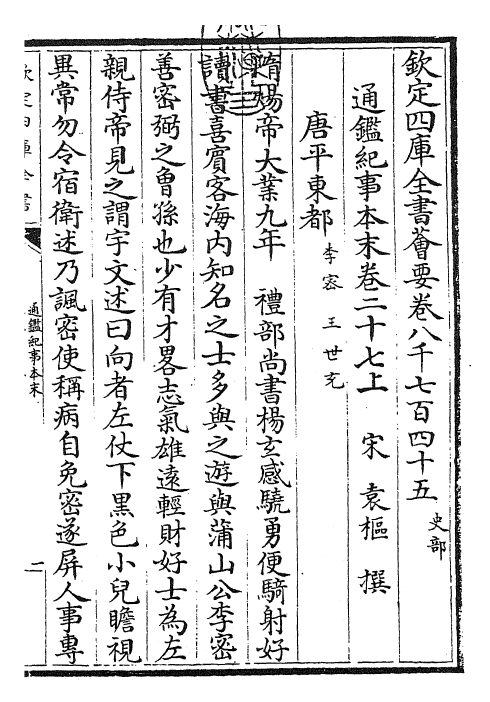 欽定四庫全書薈要卷八千七百四十五
史部
通鑑紀事本末卷二十七上 宋 袁樞 撰
唐平東都 李密 王世充
隋煬帝大業九年 禮部尚書楊玄感驍勇便騎射好
讀書喜賓客海内知名之士多與之遊與蒲山公李密
善密弼之曾孫也少有才畧志氣雄遠輕財好士為左
親侍帝見之謂宇文述曰向者左仗下黑色小兒瞻視
異常勿令宿衛述乃諷密使稱病自免密遂屏人事專
欽定四庫全書
通鑑紀事本末
二